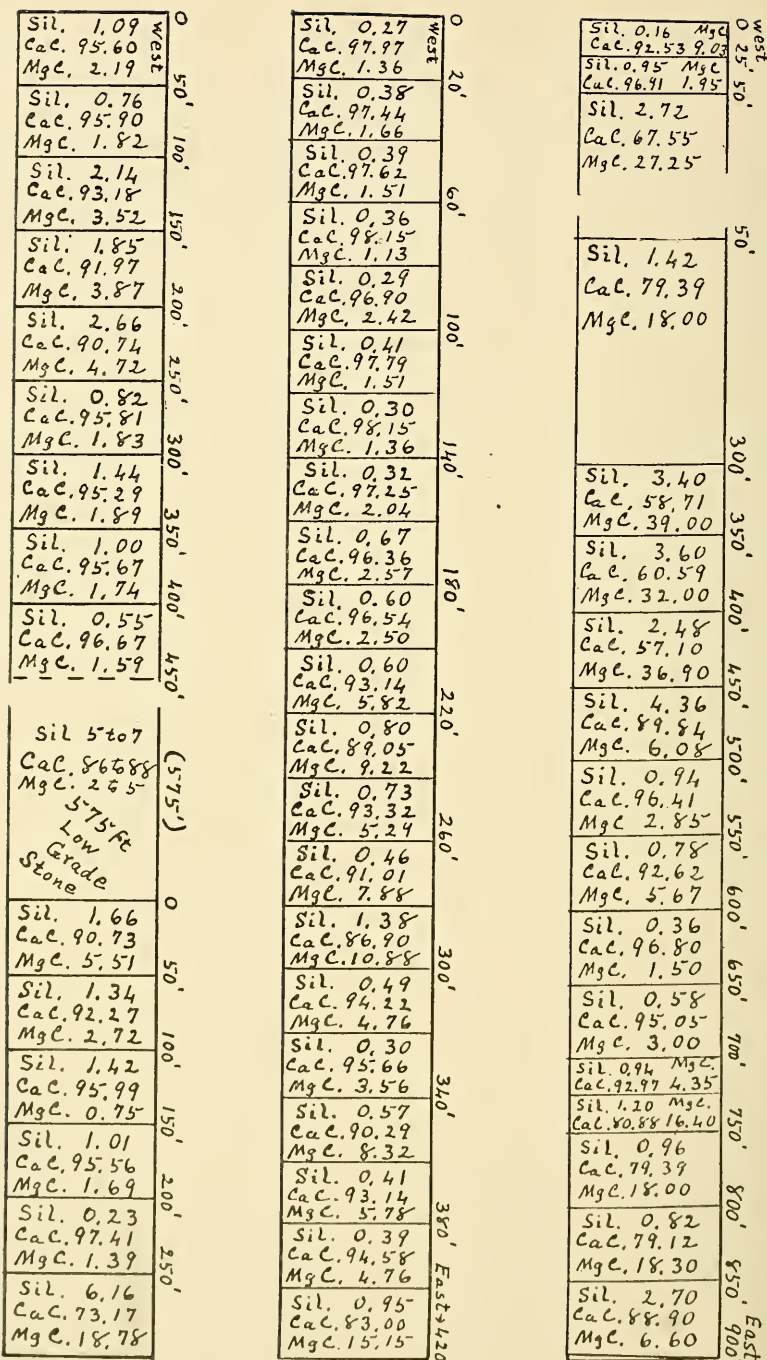 west
0
Sil. 1.09
CaC. 95.60
MgC. 2.19
50'
Sil. 0.76
CaC. 95.90
MgC. 1.82
100'
Sil. 2.14
CaC. 93.18
MgC. 3.52
150'
Sil. 1.85
CaC. 91.97
MgC. 3.87
200'
Sil. 2.66
CaC. 90.74
MgC. 4.72
250'
Sil. 0.82
CaC. 95.81
MgC. 1.83
300'
Sil. 1.44
CaC. 95.29
MgC. 1.89
350'
Sil. 1.00
CaC. 95.67
MgC. 1.74
400'
Sil. 0.55
CaC. 96.67
MgC. 1.59
450'
Sil 5 to 7
CaC. 86 to 88
MgC. 2 to 5
575 ft
Low
Grade
Stone
(575')
0
Sil. 1.66
CaC. 90.73
MgC. 5.51
50'
Sil. 1.34
CaC. 92.27
MgC. 2.72
100'
Sil. 1.42
CaC. 95.99
MgC. 0.75
150'
Sil. 1.01
CaC. 95.56
MgC. 1.69
200'
Sil. 0.23
CaC. 97.41
MgC. 1.39
250'
Sil. 6.16
CaC. 73.17
MgC. 18.78
west
0
Sil. 0.27
CaC. 97.97
MgC. 1.36
20'
Sil. 0.38
CaC. 97.44
MgC. 1.66
Sil. 0.39
CaC. 97.62
MgC. 1.51
60'
Sil. 0.36
CaC. 98.15
MgC. 1.13
Sil. 0.29
CaC. 96.90
MgC. 2.42
100'
Sil. 0.41
CaC. 97.79
MgC. 1.51
Sil. 0.30
CaC. 98.15
MgC. 1.36
140'
Sil. 0.32
CaC. 97.25
MgC. 2.04
Sil. 0.67
CaC. 96.36
MgC. 2.57
180'
Sil. 0.60
CaC. 96.54
MgC. 2.50
Sil. 0.60
CaC. 93.14
MgC. 5.82
220'
Sil. 0.80
CaC. 89.05
MgC. 9.22
Sil. 0.73
CaC. 93.32
MgC. 5.29
260'
Sil. 0.46
CaC. 91.01
MgC. 7.88
Sil. 1.38
CaC. 86.90
MgC. 10.88
300'
Sil. 0.49
CaC. 94.22
MgC. 4.76
Sil. 0.30
CaC. 95.66
MgC. 3.56
340'
Sil. 0.57
CaC. 90.29
MgC. 8.32
Sil. 0.41
CaC. 93.14
MgC. 5.78
380'
Sil. 0.39
CaC. 94.58
MgC. 4.76
Sil. 0.95
CaC. 83.00
MgC. 15.15
East+420
west
0
Sil. 0.16 MgC
CaC. 92.53 9.03
25'
Sil. 0.95 MgC
CaC. 96.91 1.95
50'
Sil. 2.72
CaC. 67.55
MgC. 27.25
50'
Sil. 1.42
CaC. 79.39
MgC. 18.00
300'
Sil. 3.40
CaC. 58.71
MgC. 39.00
350'
Sil. 3.60
CaC. 60.59
MgC. 32.00
400'
Sil. 2.48
CaC. 57.10
MgC. 36.90
450'
Sil. 4.36
CaC. 89.84
MgC. 6.08
500'
Sil. 0.94
CaC. 96.41
MgC 2.85
550'
Sil. 0.78
CaC. 92.62
MgC. 5.67
600'
Sil. 0.36
CaC. 96.80
MgC. 1.50
650'
Sil. 0.58
CaC. 95.05
MgC. 3.00
700'
Sil. 0.94 MgC.
CaC. 92.97 4.35
Sil. 1.20 MgC.
CaC. 80.88 16.40
750'
Sil. 0.96
CaC. 79.39
MgC. 18.00
800'
Sil. 0.82
CaC. 79.12
MgC. 18.30
850'
Sil. 2.70
CaC. 88.90
MgC. 6.60
East
900